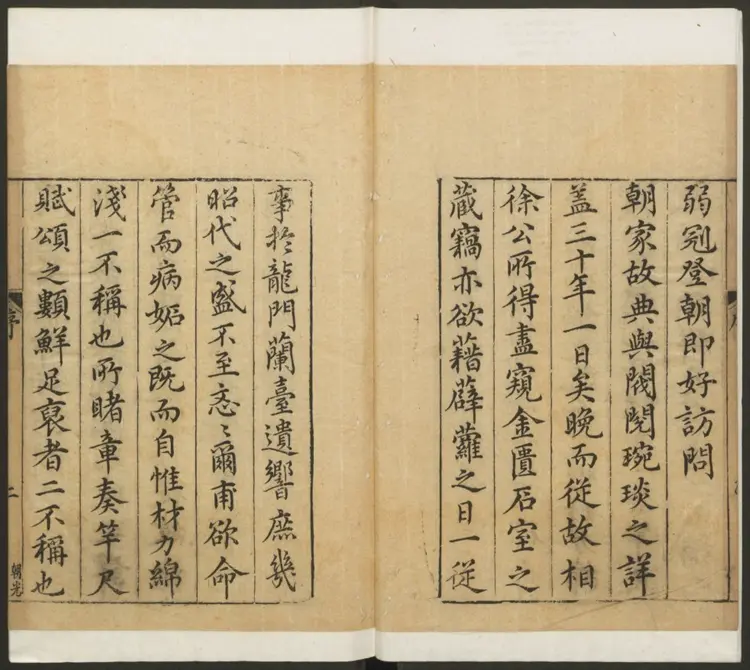 弱冠登朝即好訪問
朝家故典與閥閱琬琰之詳
盖三十年一日矣晚而從故相
徐公所得盡窺金匱石室之
藏竊亦欲藉薜蘿之日一從
事扵龍門蘭臺遺響庶幾
昭代之盛不至忞〻爾甫欲命
管而病妬之既而自惟材力綿
淺一不稱也所睹章奏竿尺
賦頌之類鮮足裒者二不稱也
序
二
朝光